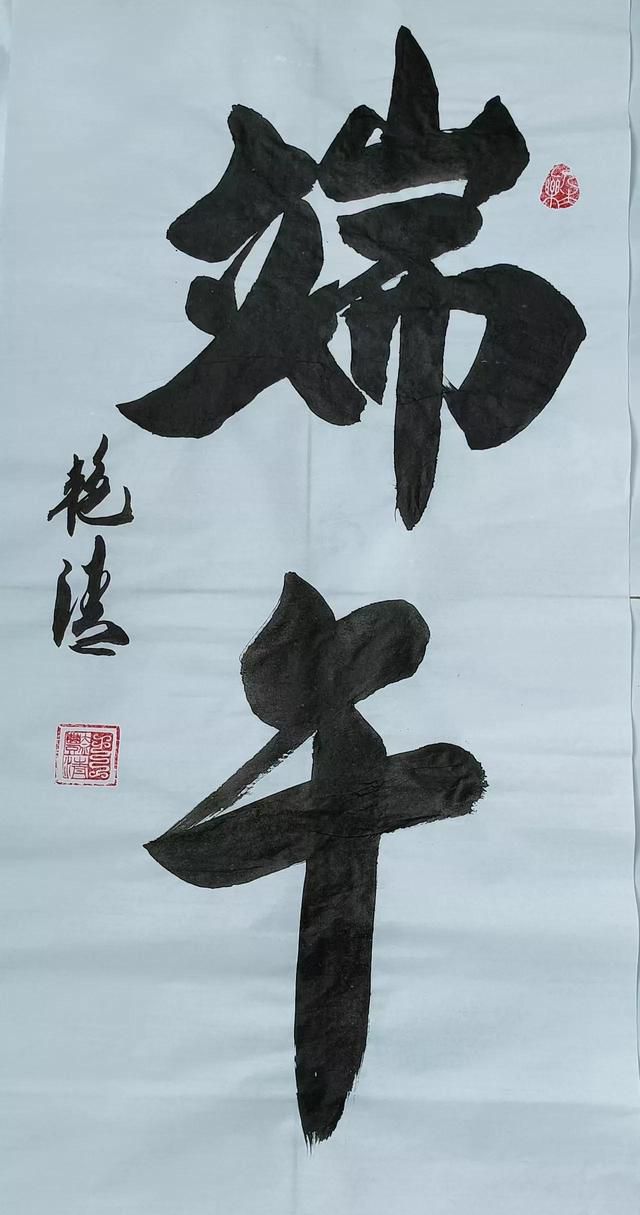 端午
艳清